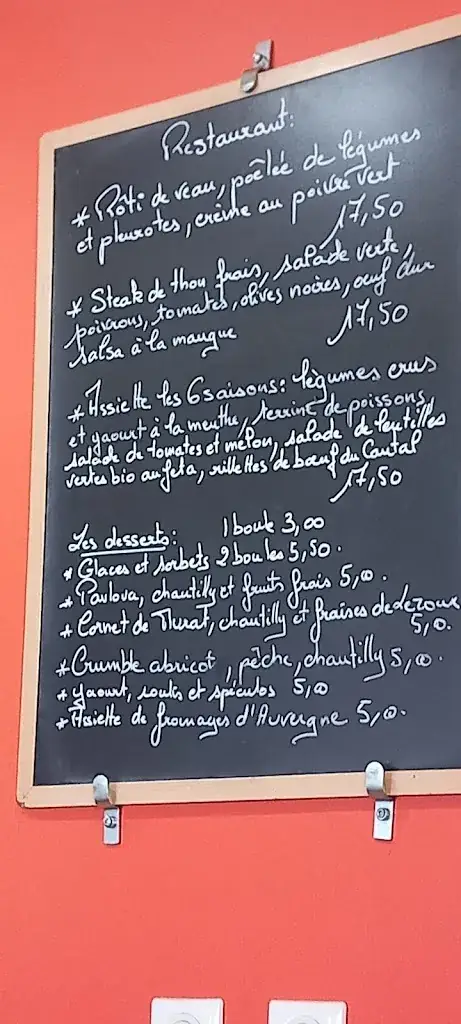 Restaurant:
* Rôti de veau, poêlée de légumes
et pleurotes, crème au poivre vert
17,50
* Steak de thon frais, salade verte,
poivrons, tomates, olives noires, œuf dur
salsa à la mangue 17,50
* Assiette les 6 saisons: légumes crus
et yaourt à la menthe, terrine de poissons,
salade de tomates et melon, salade de lentilles
vertes bio au feta, rillettes de bœuf du Cantal
17,50
Les desserts: 1 boule 3,00
* Glaces et sorbets 2 boules 5,50.
* Pavlova, chantilly et fruits frais 5,00.
* Cornet de Murat, chantilly et fraises de Lezoux
5,0.
* Crumble abricot, pêche, chantilly 5,00.
* yaourt, coulis et spéculos 5,00
* Assiette de fromages d'Auvergne 5,00.